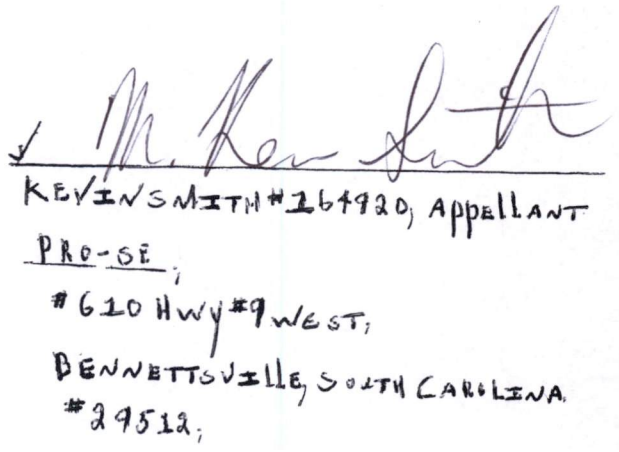 M. Kevin Smith
KEVIN SMITH #164920, APPELLANT
PRO-SE;
#610 HWY #9 WEST;
BENNETTSVILLE, SOUTH CAROLINA
#29512;